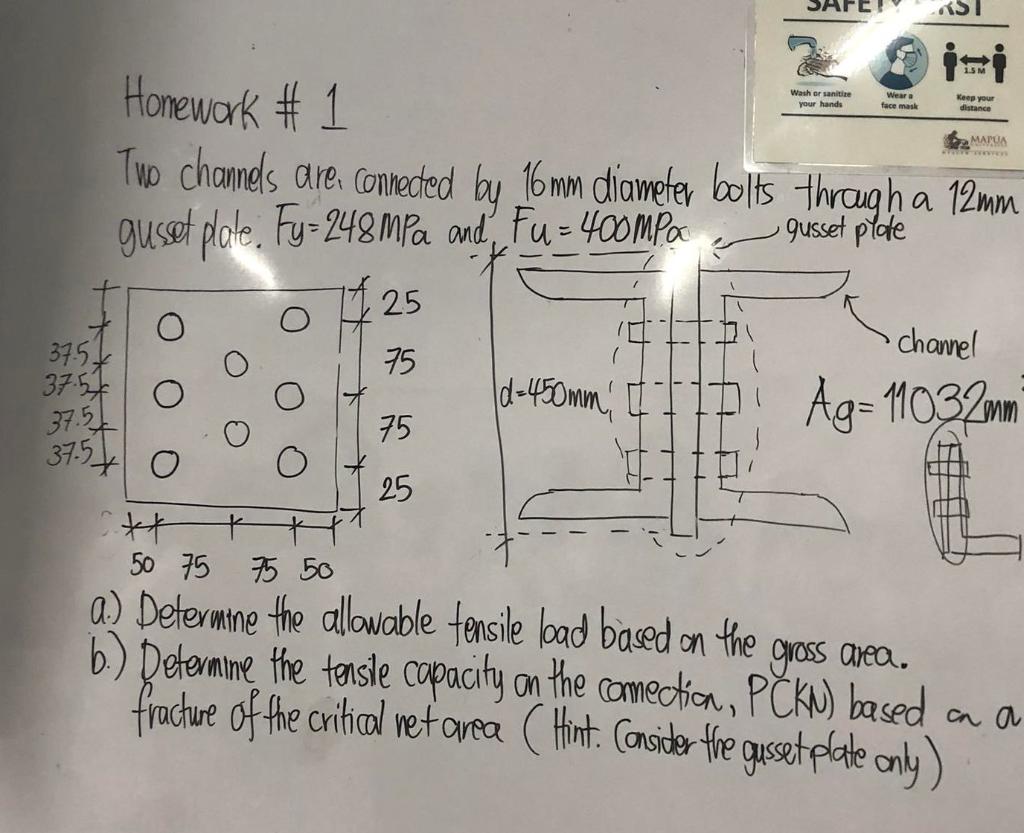 SAFETY FIRST
Wash or sanitize your hands
Wear a face mask
1.5 M
Keep your distance
MAPÚA
Homework # 1
Two channels are connected by 16mm diameter bolts through a 12mm
gusset plate. Fy=248MPa and Fu = 400MPa
gusset plate
25
75
75
25
37.5
37.5
37.5
37.5
50 75 75 50
d=450mm
channel
Ag= 11032mm
a.) Determine the allowable tensile load based on the gross area.
b.) Determine the tensile capacity on the connection, P(KN) based on a
fracture of the critical net area (Hint. Consider the gusset plate only)